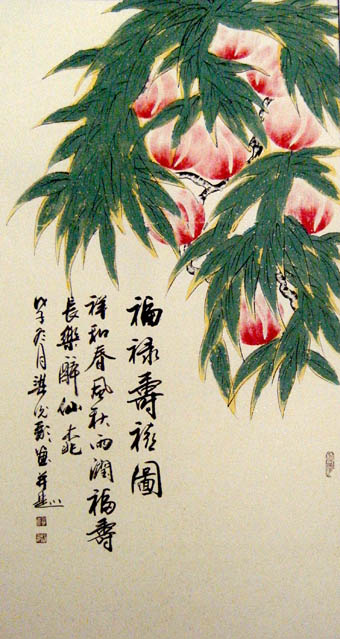 福禄壽禧圖
祥和春風秋雨潤福壽
長樂醉仙桃
戊子冬月